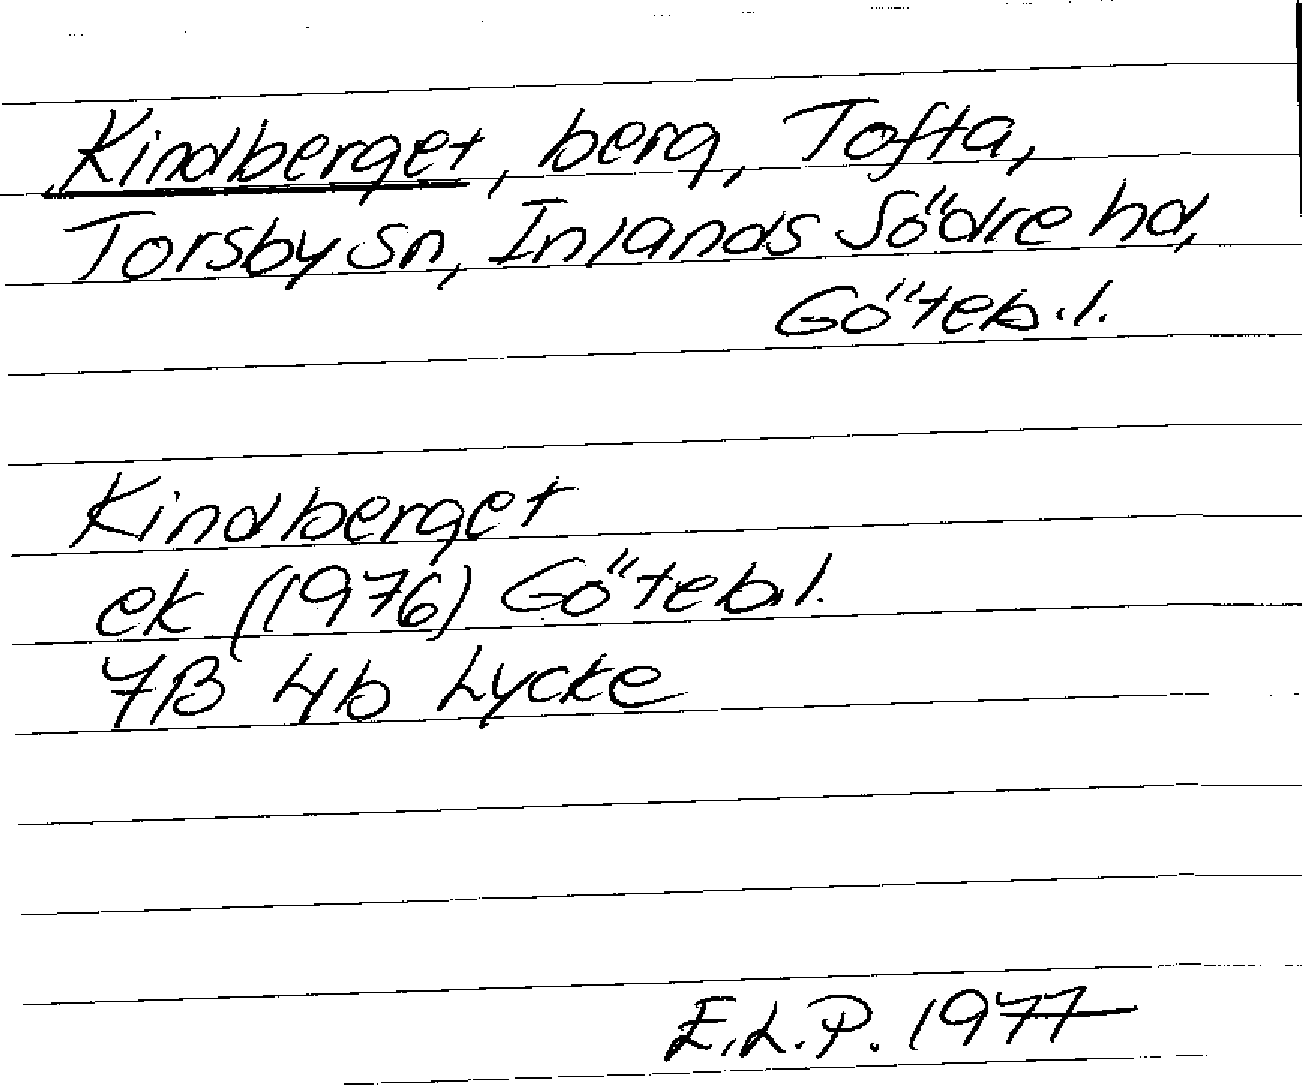 Kindberget, berg, Tofta,
Torsby sn, Inlands Södre hd,
Göteb.l.
Kindberget
ek (1976) Göteb.l.
7B 4b Lycke
E.L.P. 1977